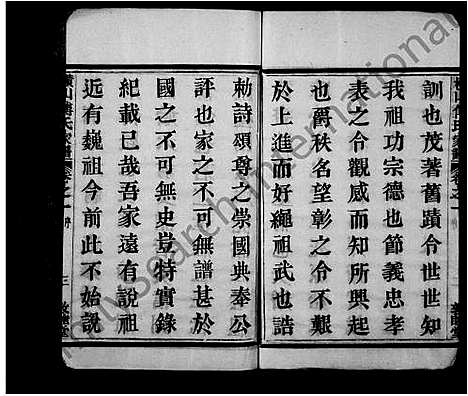 訓也茂著舊蹟令世世知
我祖功宗德也節義忠孝
表之令觀感而知所興起
也爵秩名望彰之令不艱
於上進而好繩祖武也誥
勅詩頌尊之崇國典奉公
評也家之不可無譜甚於
國之不可無史豈特實錄
紀載已哉吾家遠有說祖
近有魏祖今前此不始說
三